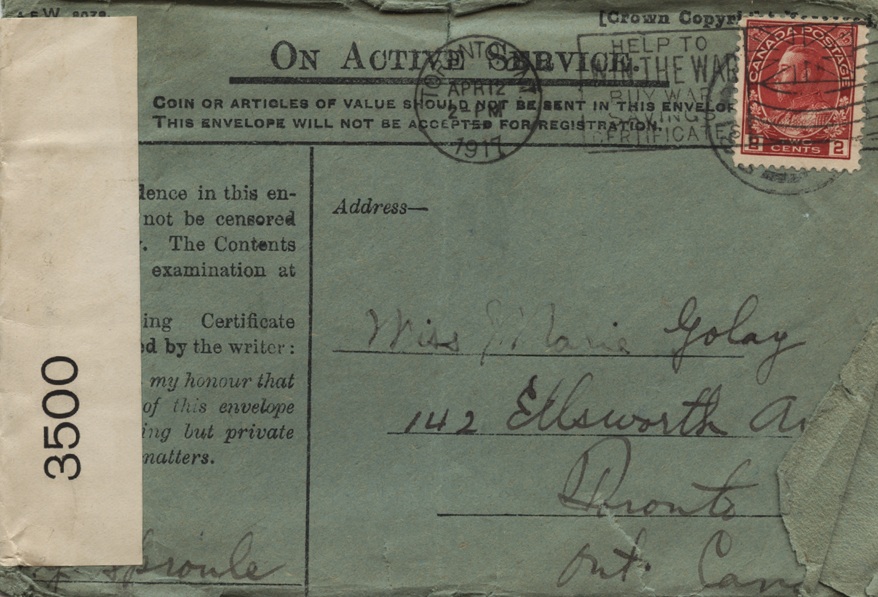 A.F.W. 3078
[Crown Copyright Reserved.]
ON ACTIVE SERVICE.
COIN OR ARTICLES OF VALUE SHOULD NOT BE SENT IN THIS ENVELOP
THIS ENVELOPE WILL NOT BE ACCEPTED FOR REGISTRATION.
TORONTO
APR 12
2- PM
1917
HELP TO
WIN THE WAR
BUY WAR
SAVINGS
CERTIFICATES
CANADA POSTAGE
2 TWO 2
CENTS
dence in this en-
not be censored
y. The Contents
examination at
ing Certificate
ed by the writer:
my honour that
of this envelope
ing but private
matters.
3500
Sproule
Address—
Miss Marie Golay
142 Ellsworth Av
Toronto
Ont. Cana